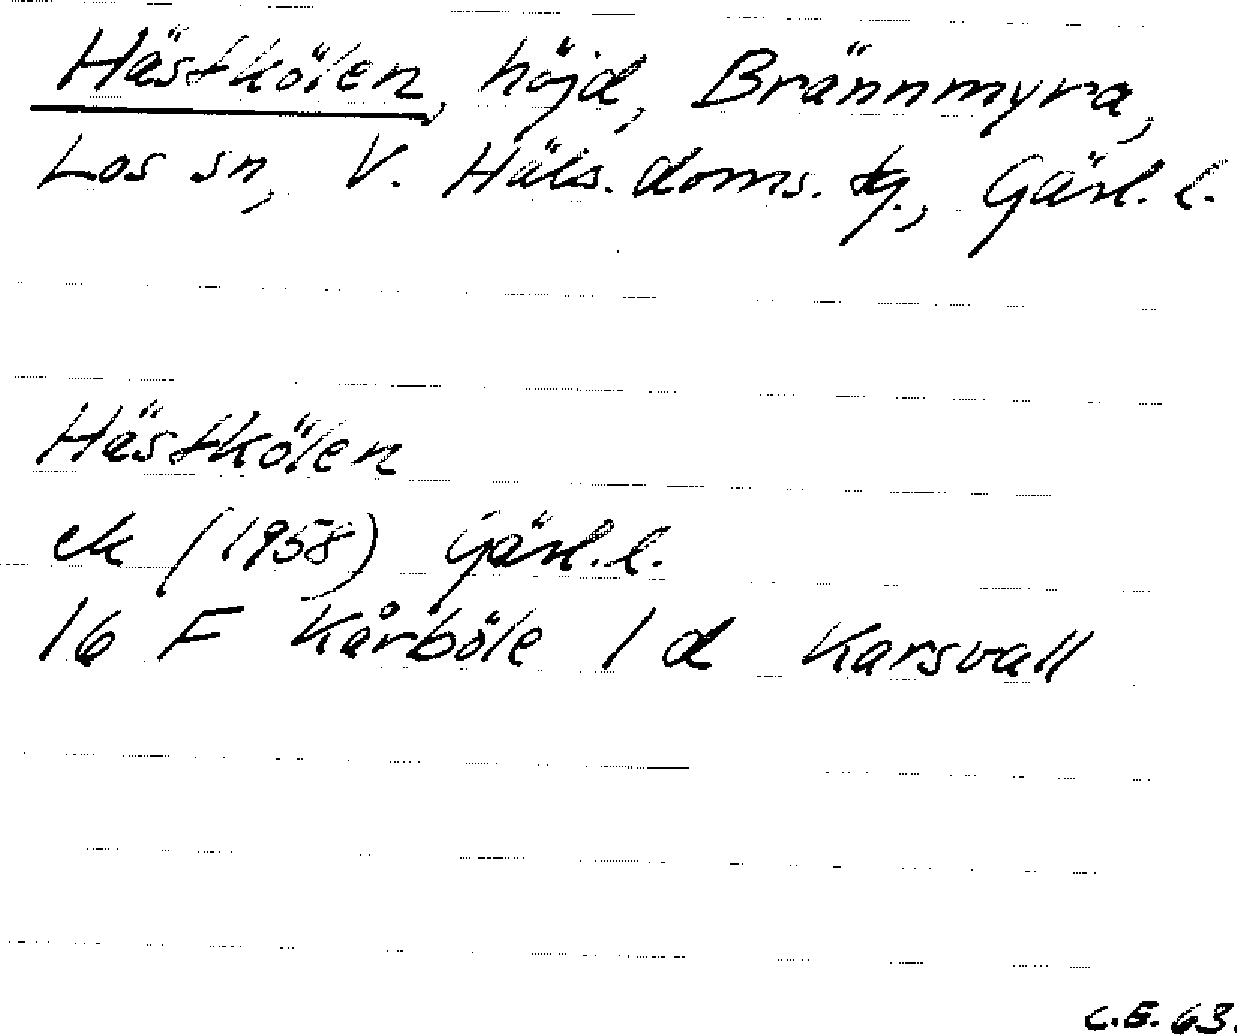 Hästkölen, höjd, Brännmyra,
Los sn, V. Häls. doms. tg., Gävl. l.
Hästkölen
ek (1958) Gävl. l.
16 F Kårböle 1 d Karsvall
C.E. 63.